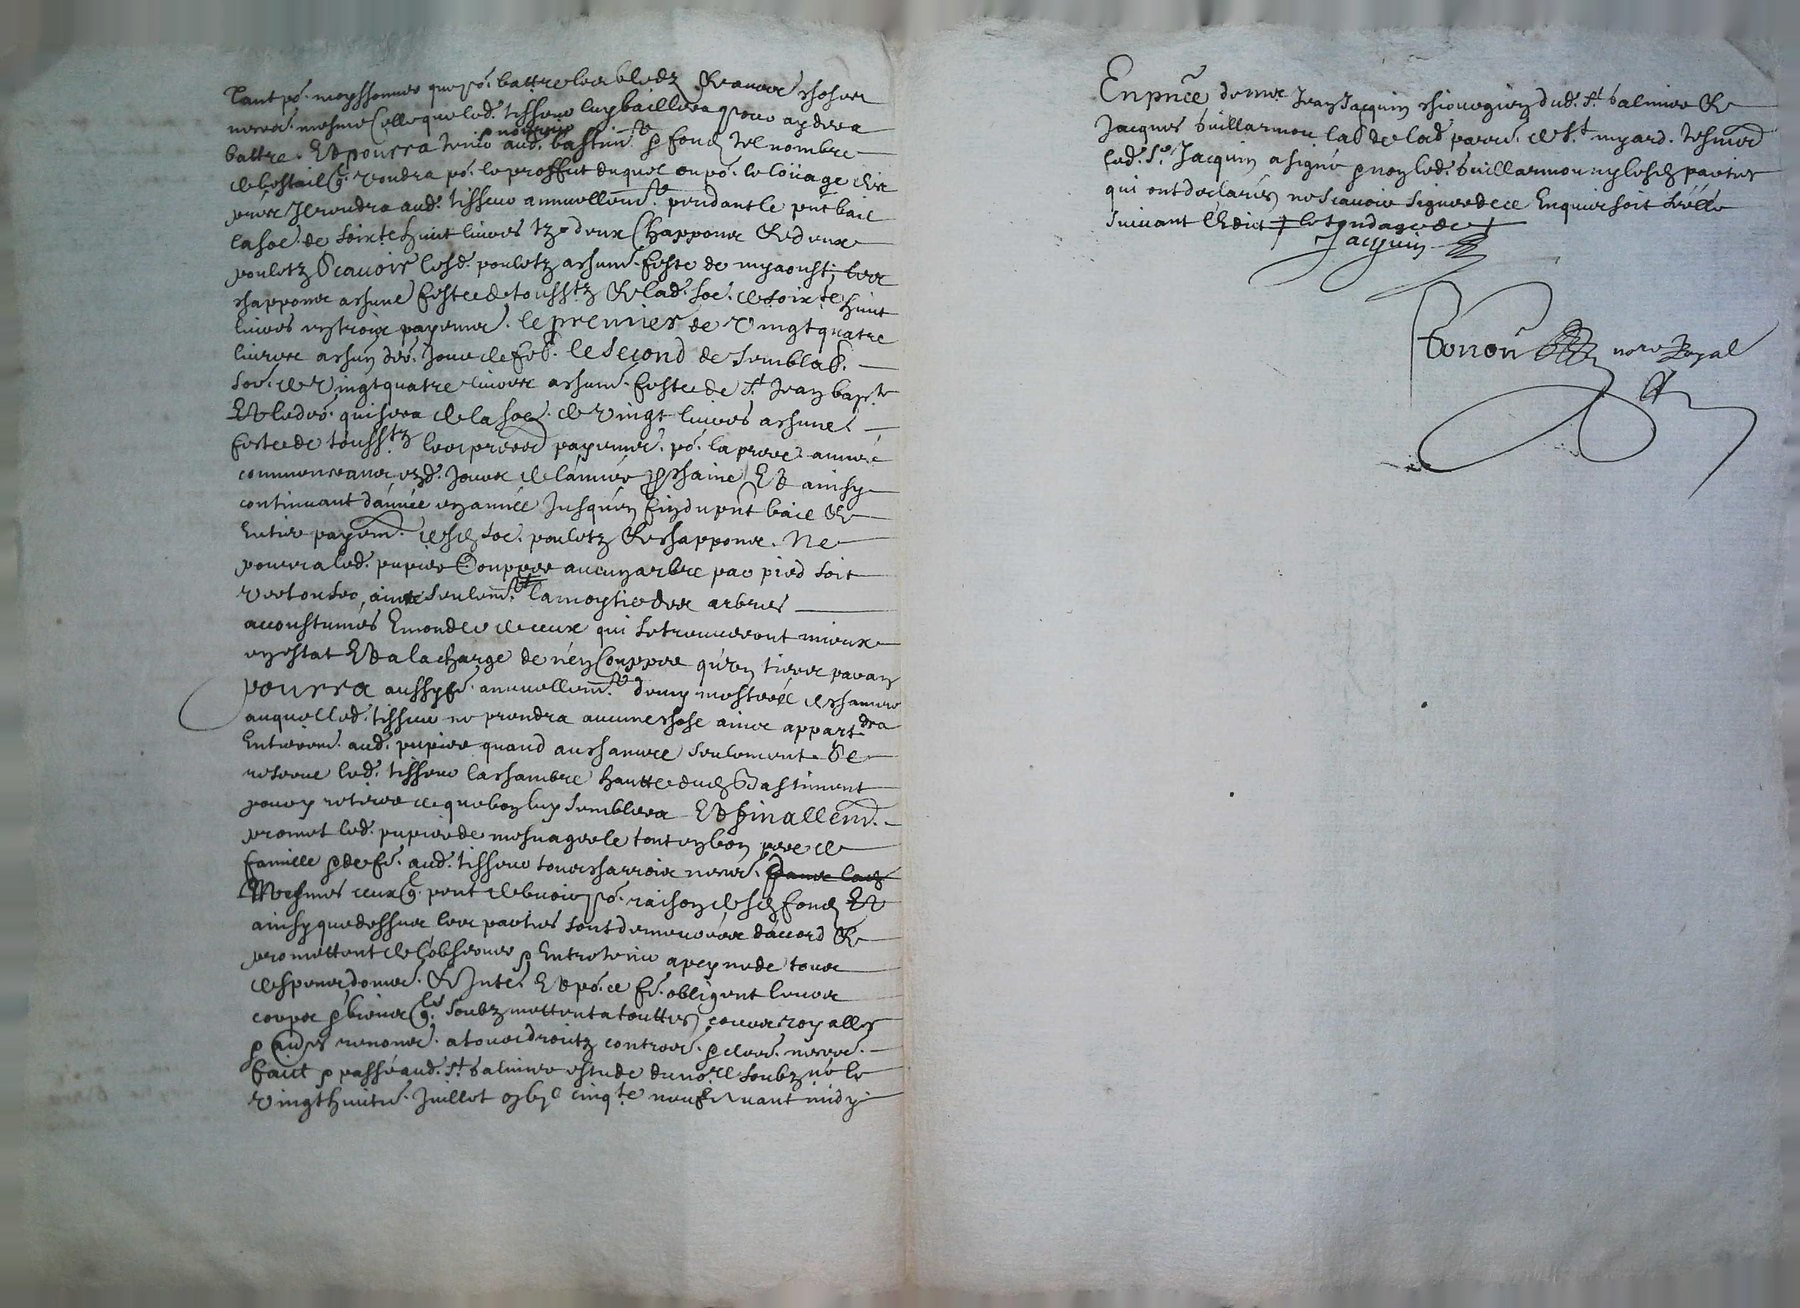 Tant po. moyssonner que po. battre les bledz & autres choses
neces. mesme celle que led. tisseur luy baillera pour ayder a
battre. Et pourra tenir & nourrir aud. bastim.t & fond tel nombre
de bestail q. vondra po. le proffit duquel ou po. le loüage dic
prix Il rendra aud. tisseur annuellem.t pendant le pnt bail
la so.e de soix.te huit livres tz deux chappons & deux
pouletz Scavoir lesd. poulets a chune. feste de my aoust, les
chappons a chune feste de touss.tz & lad. so.e de soix.te huit
livres en trois payemes. le premier de vingt quatre
livres a chun der. jour de feb. le second de semblab.
so.e de vingt quatre livres a chune. feste de S.t Jean bap.te
Et le der. qui sera de la so.e de vingt livres a chune
feste de touss.tz les premrs payemes. po. la pree. année
commenceront esd. jours de l'année pchaine Et ainsy
continuant d'année en année Jusqu'en fin du pnt bail &
Entier payem. desd. so.e poulets & chappons. Ne
pourra led. pupier Coupper aucun arbre par pied soit
vert ou sec, ains seulem.t la moytie des arbres
accoustumés Emonder de ceux qui se trouveront mieux
en estat Et a la charge de n'en Coupper qu'en tiers par an
pourra aussy fe. annuellem.t demy mestérée de chanvre
auquel led. tisseur ne prendra aucune chose ains appart.dra
Entierem. aud. pupier quand au chanvre seulement. Se
reserve led. tisseur la chambre hautte dud. Bastiment
pour y retirer ce que bon luy semblera Et finallem.
promet led. pupier de mesnager le tout en bon pere de
famille & de fe. aud. tisseur tous charrois neces.
Mesmes ceux q. pent debvoir po. raison desd. fond Et
ainsy que dessus les parties sont demeurées d'accord &
promettent de l'observer & Entretenir a peyne de tous
despens, domes. & Intes. Et po. ce fe. obligent leurs
corps & biens q.lz soubzmettent a touttes cours royalles
& aues renoncs. a tous droitz contres. & claes. neces.
faict & passé aud. S.t Galmier estude du no.re soubzné le
vingt huitie. Juillet mil vj.c cinq.te neuf avant midy
En pnce de me Jean Jacquin chirurgien dud. S.t Galmier &
Jacques Guillarmon lab. de lad. parro. de S.t myard. tesmoi
led. S.r Jacquin a signé & non led. Guillarmon ny lesd. parties
qui ont declarés ne scavoir signer de ce Enquis soit scéllé
suivant l'edict
Jacquin
Tonon no.re Royal